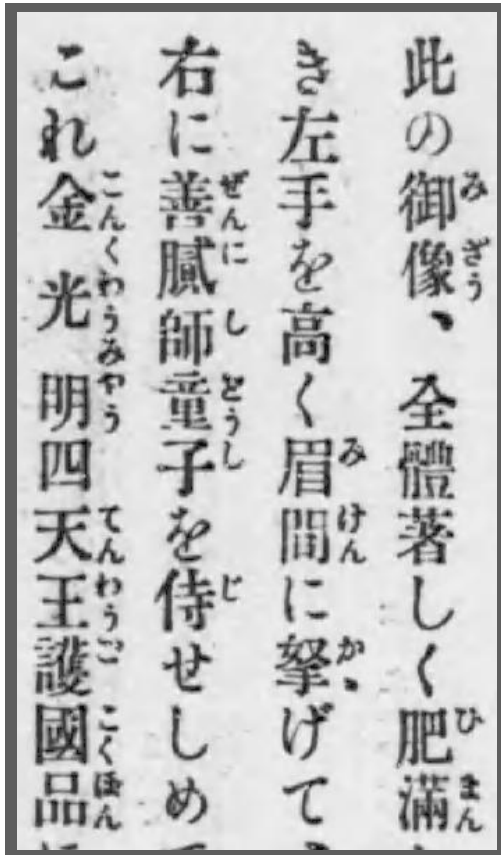 此の御像、全體著しく肥滿
き左手を高く眉間に拏げて
右に善膩師童子を侍せしめ
これ金光明四天王護國品